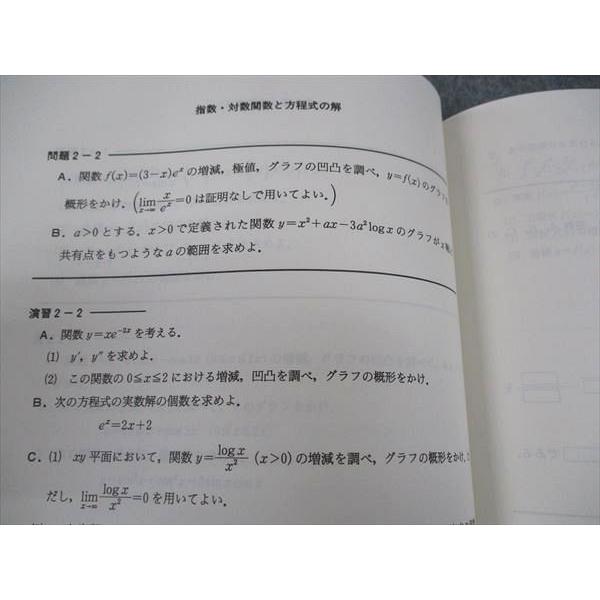 指数・対数関数と方程式の解
問題2-2
A. 関数 f(x)=(3-x)eˣ の増減, 極値, グラフの凹凸を調べ, y=f(x) のグラフ
概形をかけ. (lim x→∞ x/eˣ=0 は証明なしで用いてよい.)
B. a>0 とする. x>0 で定義された関数 y=x²+ax-3a²logx のグラフが x
共有点をもつような a の範囲を求めよ.
演習2-2
A. 関数 y=xe⁻²ˣ を考える.
(1) y′, y″ を求めよ.
(2) この関数の 0≦x≦2 における増減, 凹凸を調べ, グラフの概形をかけ.
B. 次の方程式の実数解の個数を求めよ.
eˣ=2x+2
C. (1) xy 平面において, 関数 y=logx/x² (x>0) の増減を調べ, グラフの概形をかけ.
だし, lim x→∞ logx/x²=0 を用いてよい.